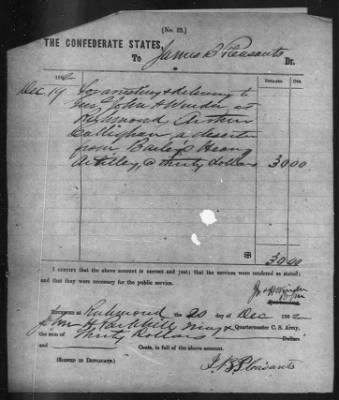 (No. 22.)
THE CONFEDERATE STATES,
To James B Pleasants Dr.
186
DOLLARS. CTS.
Dec 19 For arresting & delivering to
Gen John H Winder at
Richmond
Callighan, a deserter
from Heavy
Artillery, @ thirty dollars 30 00
30.00
I CERTIFY that the above account is correct and just; that the services were rendered as stated;
and that they were necessary for the public service.
RECEIVED at Richmond the 20 day of Dec 186
John H Quartermaster C. S. Army,
the sum of Thirty Dollars Dollars
and Cents, in full of the above account.
(SIGNED IN DUPLICATE.)
J B Pleasants